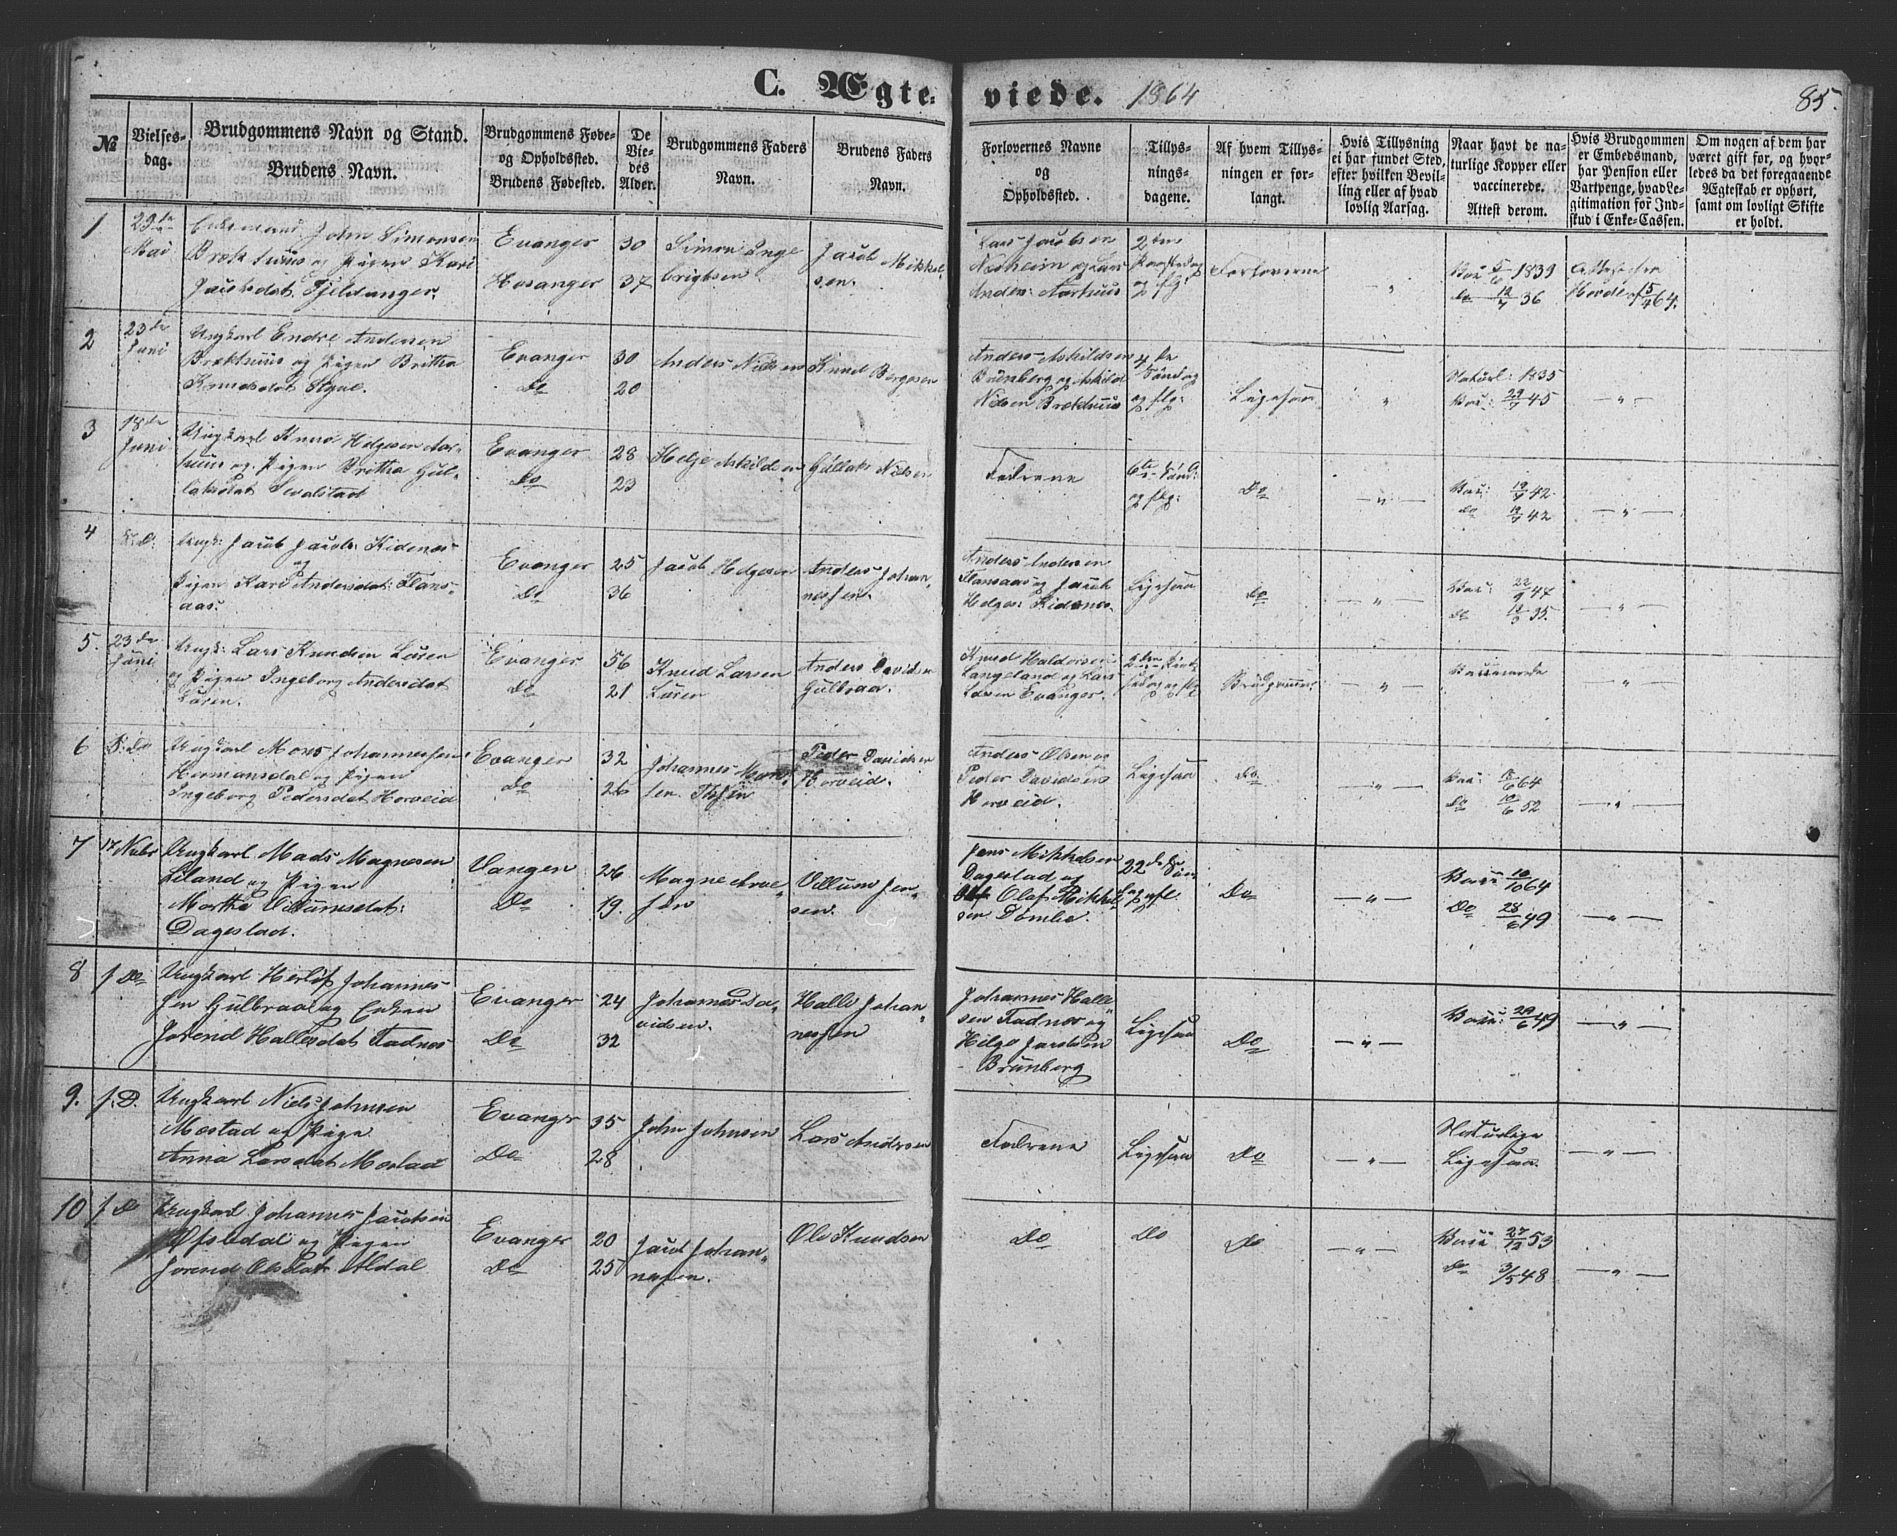 C. Ægte-
viede. 1864
85.
№
Vielses-
dag.
Brudgommens Navn og Stand.
Brudens Navn.
Brudgommens Føde-
og Opholdssted.
Brudens Fødested.
De
Vie-
des
Alder.
Brudgommens Faders
Navn.
Brudens Faders
Navn.
Forlovernes Navne
og
Opholdssted.
Tillys-
nings-
dagene.
Af hvem Tillys-
ningen er for-
langt.
Hvis Tillysning
ei har fundet Sted,
efter hvilken Bevil-
ling eller af hvad
lovlig Aarsag.
Naar havt de na-
turlige Kopper eller
vaccinerede.
Attest derom.
Hvis Brudgommen
er Embedsmand,
har Pension eller
Vartpenge, hvad Le-
gitimation for Ind-
skud i Enke-Cassen.
Om nogen af dem har
været gift før, og hvor-
ledes da det foregaaende
Ægteskab er ophørt,
samt om lovligt Skifte
er holdt.
1
29de
Mai
Enkemand John Simonsen
Brækhuus og Pigen Kari
Jacobsdat. Fjeldanger.
Evanger
Hosanger
30
37
Simon Inge
brigtsen
Jacob Mikkel-
sen.
Lars Jacobsen
Næsheim og Lars
Anders: Aarhuus
2den
og flg:
Forloverne
"
Vac 1839
do 12/7 36
Attest fra
2
23de
Juni
Ungkarl Endre Andersen
Brækhuus og Pigen Britha
Knudsdat
Evanger
Do
30
20
Anders Nielsen
Knud Borgesen
Anders Askildsen
Brunberg og Askild
Nilsen Brækhuus
4de
Søndag
og flg:
Ligesaa
"
Naturl: 1835
Vac: 29/7 45
— " —
3
18de
Juni
Ungkarl Knud Helgesen Aar-
huus og Pigen Britha Gul-
laksdat
Evanger
Do
28
23
Helge Askildsen
Gullak Nilsen
Fædrene
6te Sønd:
og flg:
Do
— " —
Vac: 19/7 42
do 19/7 42
— " —
4
S: D.
Ungk: Jacob Jacobs: Kidenæs
og
Pigen Kari Andersdat: Flans-
aas.
Evanger
Do
25
36
Jacob Helgesen
Anders Johan-
nessen.
Anders Andersen
Flansaas og Jacob
Helges: Kidenæs
Ligesaa
Do
— " —
Vac: 22/9 47
Do 35.
— " —
5.
23de
Juni
Ungk: Lars Knudsen Løren
og Pigen Ingeborg Andersdat
Løren.
Evanger
Do
56
21
Knud Larsen
Løren
Anders Davidsen
Gulbraa.
Knud Haldorsen
Langeland og Lars
Larsen Evanger.
Brudgommen
— " —
Vaccinerede
— " —
6
S: Do
Ungkarl Mons Johannessen
Hermansdal og Pigen
Ingeborg Pedersdat Horveid
Evanger
Do
32
26
Johannes Mons-
sen
Peder Davidsen
Horveid.
Anders Olsen og
Peder Davidsen
Horveid.
Ligesaa
Do
— " —
Vac: 64
Do 52
— " —
7
17 Novbr
Ungkarl Mads Magnesen
Liland og Pigen
Martha Villumsdat:
Dagestad.
Vangen
Do
26
19.
Magne Arne-
sen
Villum Jen-
sen.
Jens Mikkelsen
Dagestad og
Olaf Mikkel-
sen Tombre
22de Søn
dag og fl.
Do
— " —
Vacc 10/10 64
Do 28/6 49
— " —
8
f Do
Ungkarl Herlof Johannes-
sen Gulbraa og Enken
Jorend Hallesdat Fadnes
Evanger
Do
24
32
Johannes Da-
vidsen.
Halle Johan-
nessen
Johannes Halle-
sen Fadnes og
Helge Jacobsen
Brunberg
Ligesaa
Do
— " —
Vacc: 29/6 49
— " —
9.
f. D.
Ungkarl Niels Johnsen
Mæstad og Pige
Anna Larsdat Mæstad
Evanger
Do
35
28
John Johnsen
Lars Andersen
Fædrene
Ligesaa
Do
— " —
Naturlige
Ligesaa.
— " —
10
f D
Ungkarl Johannes Jacobsen
Øfsdal og Pigen
Jorend Olsdat Aldal
Evanger
Do
20
25
Jacob Johan-
nessen.
Ole Knudsen
Do
Do
Do
— " —
Vacc 27/12 53
do 3/5 48
— " —